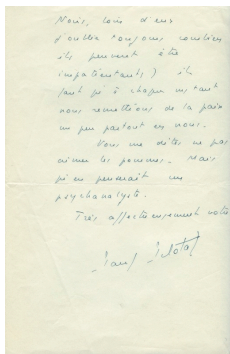 Mais, loin d'eux
d'oublier toujours combien
ils peuvent être
impatientants) ils
font qu'à chaque instant
nous remettions de la paix
un peu partout en nous.
Vous me dites ne pas
aimer les pommes. Mais
qu'en penserait un
psychanalyste.
Très affectueusement votre